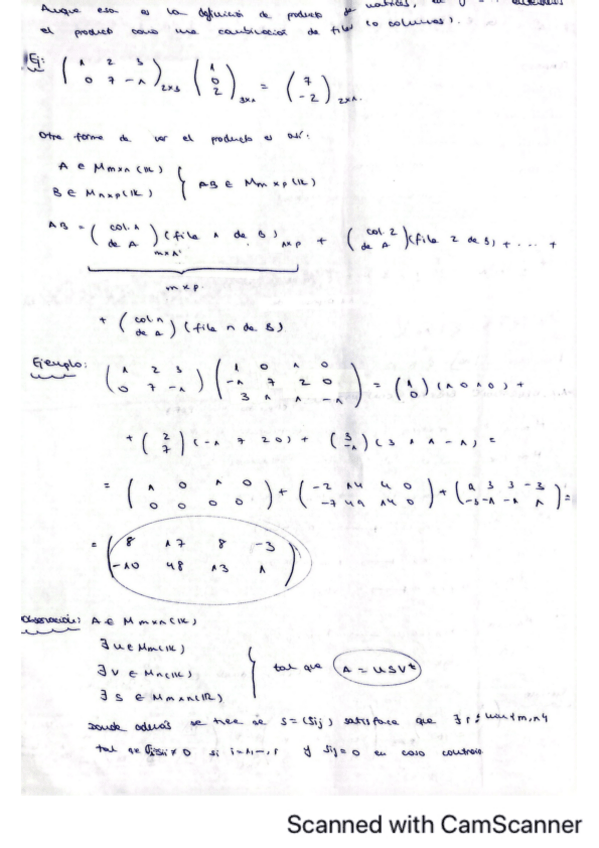 Aunque esa es la definición de producto de matrices,
el producto como una combinación de filas (o columnas).
Ej: ( 1 2 3 ; 0 7 -1 )2x3 ( 1 ; 0 ; 2 )3x1 = ( 7 ; -2 )2x1.
Otra forma de ver el producto es así:
A ∈ Mmxn(IK)
B ∈ Mnxp(IK) } AB ∈ Mmxp(IK)
AB = ( col. 1 de A )mx1 (fila 1 de B)1xp + ( col 2 de A )(fila 2 de B) + ... +
mxp
+ ( col n de A ) (fila n de B)
Ejemplo: ( 1 2 3 ; 0 7 -1 ) ( 1 0 1 0 ; -1 7 2 0 ; 3 1 1 -1 ) = ( 1 ; 0 ) (1 0 1 0) +
+ ( 2 ; 7 ) (-1 7 2 0) + ( 3 ; -1 ) (3 1 1 -1) =
= ( 1 0 1 0 ; 0 0 0 0 ) + ( -2 14 4 0 ; -7 49 14 0 ) + ( 9 3 3 -3 ; -3 -1 -1 1 ) =
= ( 8 17 8 -3 ; -10 48 13 1 )
Observación: A ∈ Mmxn(IK)
∃ U ∈ Mm(IK)
∃ V ∈ Mn(IK)
∃ S ∈ Mmxn(IR) } tal que A = USVt
Donde además se tiene que S = (Sij) satisface que ∃ r ≤ min{m,n}
tal que Sii ≠ 0 si i=1,...,r y Sij = 0 en caso contrario
Scanned with CamScanner